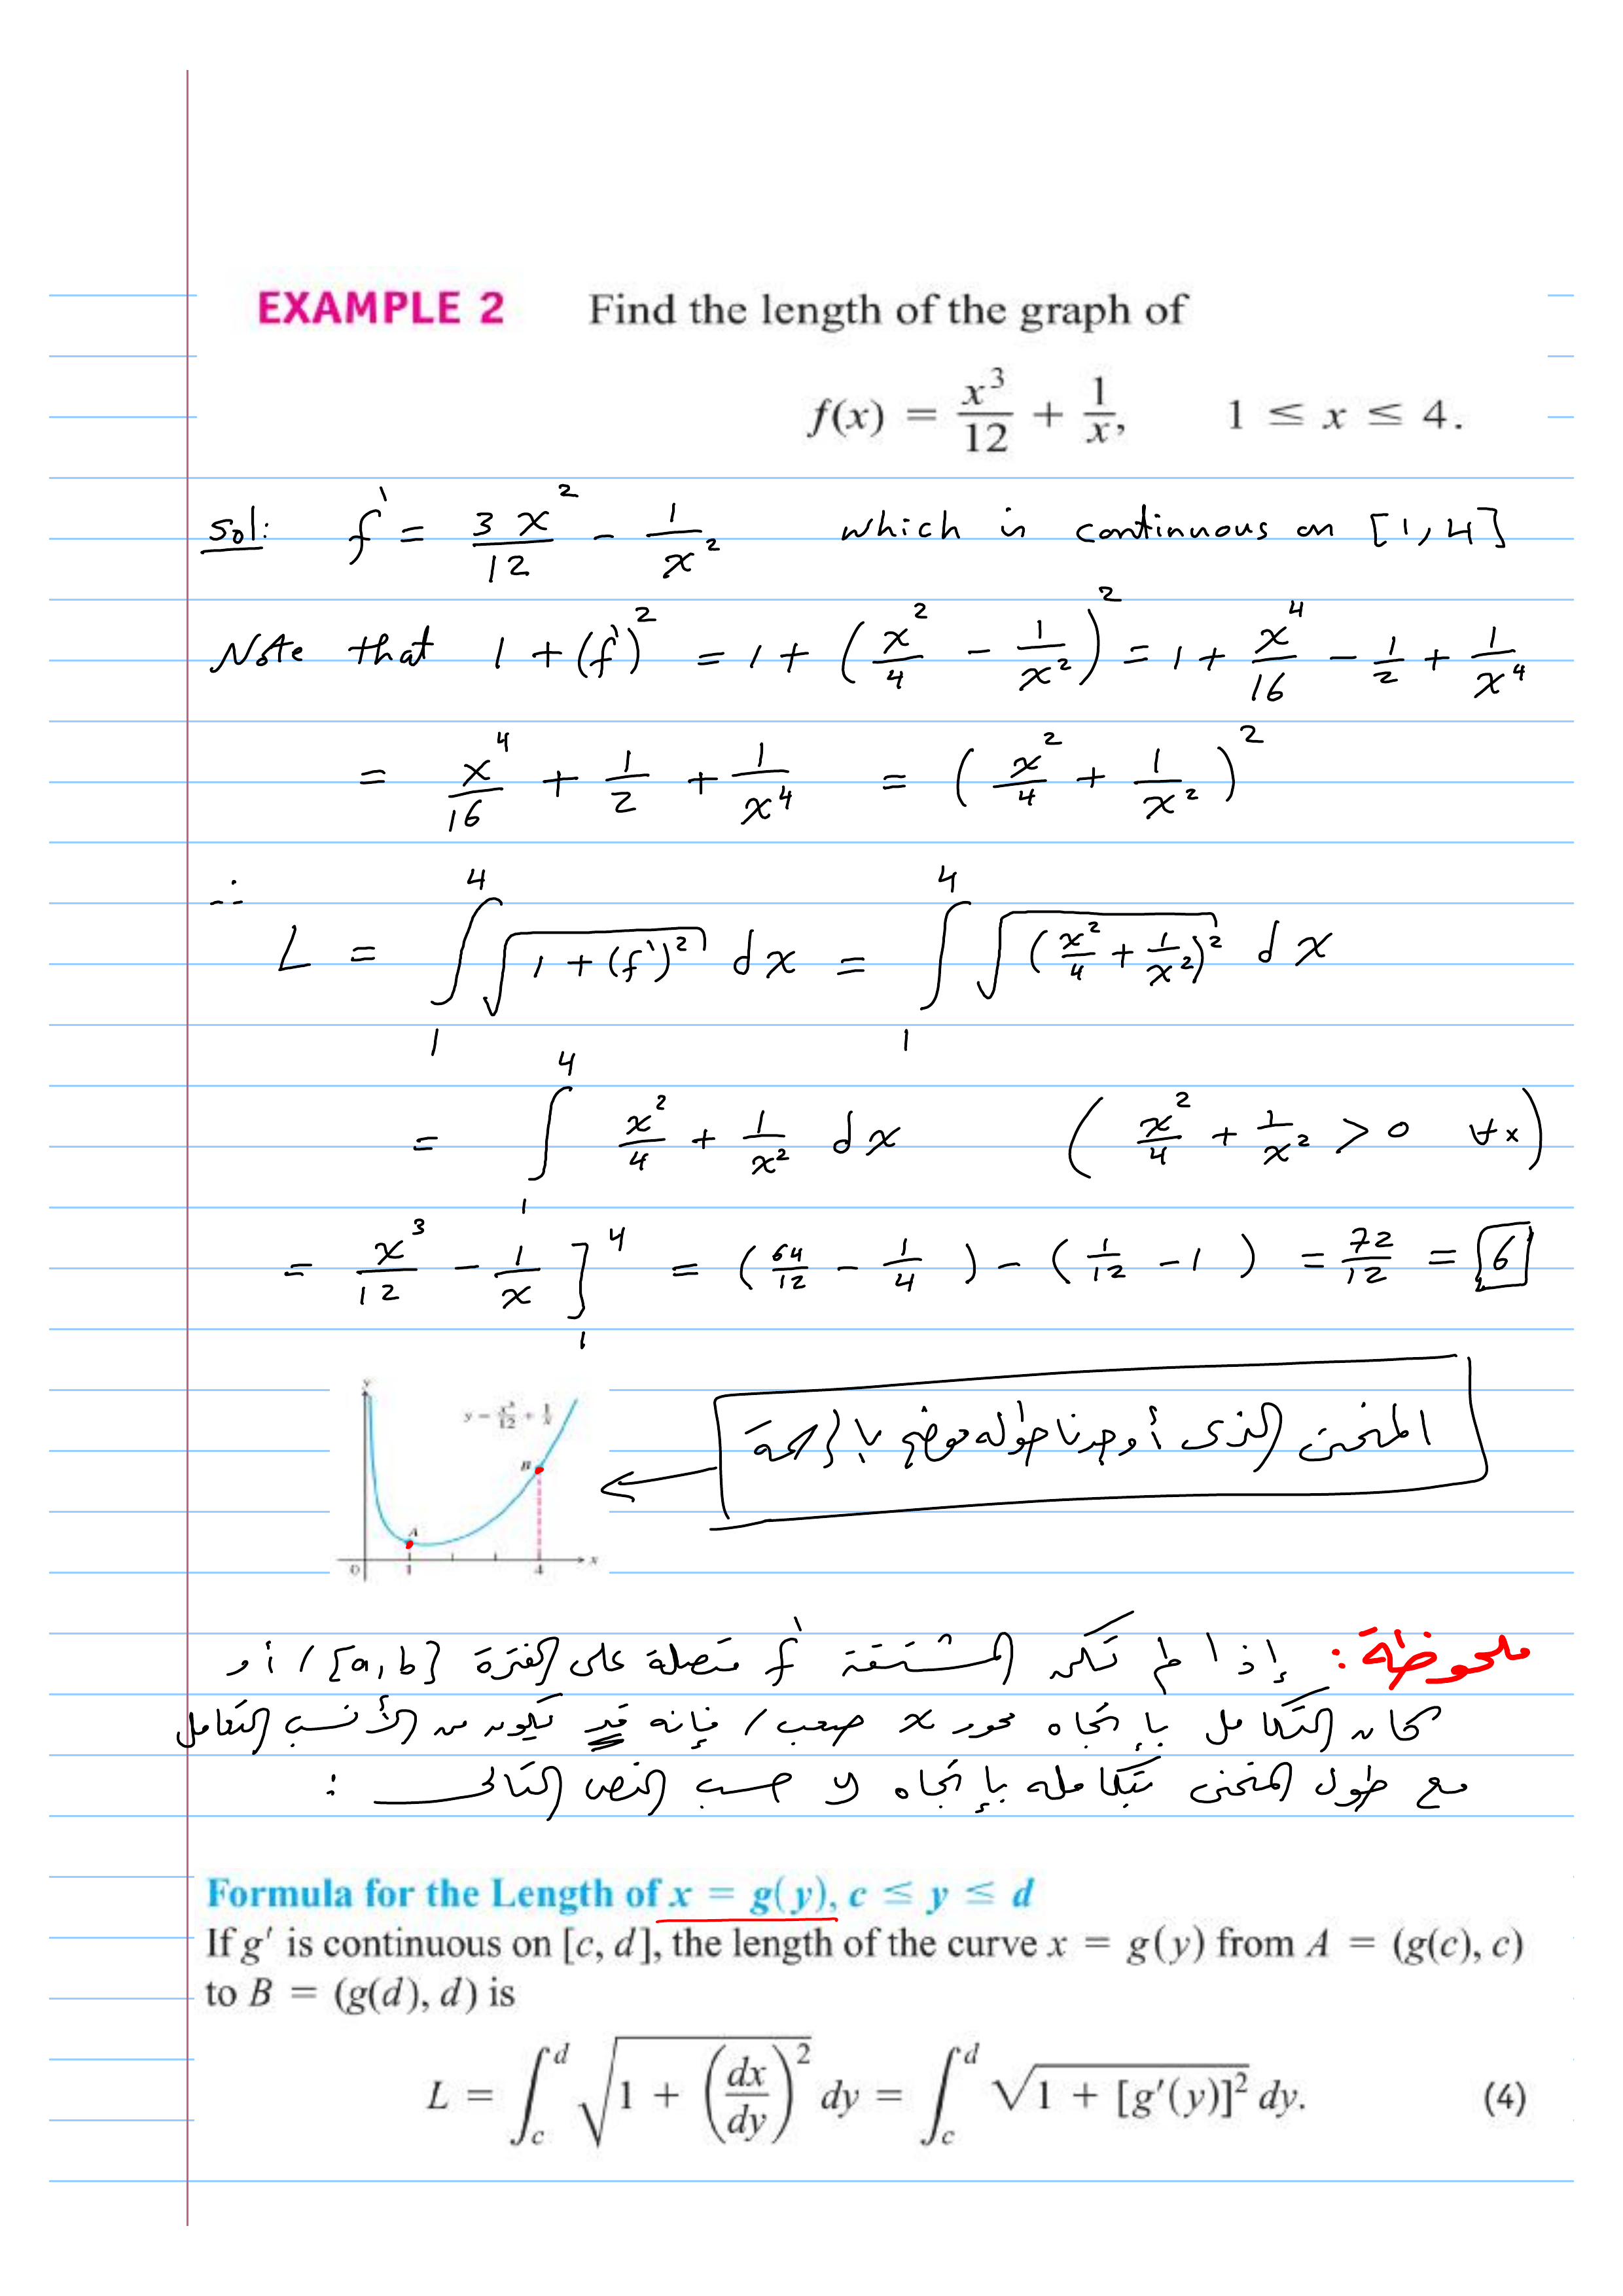 EXAMPLE 2 Find the length of the graph of
f(x) = x³/12 + 1/x, 1 ≤ x ≤ 4.
Sol: f' = 3x²/12 - 1/x² which is continuous on [1,4]
Note that 1 + (f')² = 1 + (x²/4 - 1/x²)² = 1 + x⁴/16 - 1/2 + 1/x⁴
= x⁴/16 + 1/2 + 1/x⁴ = (x²/4 + 1/x²)²
∴
L = ∫₁⁴ √(1 + (f')²) dx = ∫₁⁴ √((x²/4 + 1/x²)²) dx
= ∫₁⁴ x²/4 + 1/x² dx (x²/4 + 1/x² > 0 ∀x)
= x³/12 - 1/x ]₁⁴ = (64/12 - 1/4) - (1/12 - 1) = 72/12 = 6
y
y = x³/12 + 1/x
المنحنى الذى أوجدنا طوله موضح بالرسمة
B
A
0 1 4 x
ملحوظة: إذا لم تكن المشتقة f' متصلة على الفترة [a,b]، أو
كان التكامل بإتجاه محور x صعب، فإنه قد يكون من الأنسب التعامل
مع طول المنحنى بتكامله بإتجاه y حسب النص التالى:
Formula for the Length of x = g(y), c ≤ y ≤ d
If g' is continuous on [c, d], the length of the curve x = g(y) from A = (g(c), c)
to B = (g(d), d) is
L = ∫_c^d √(1 + (dx/dy)²) dy = ∫_c^d √(1 + [g'(y)]²) dy. (4)